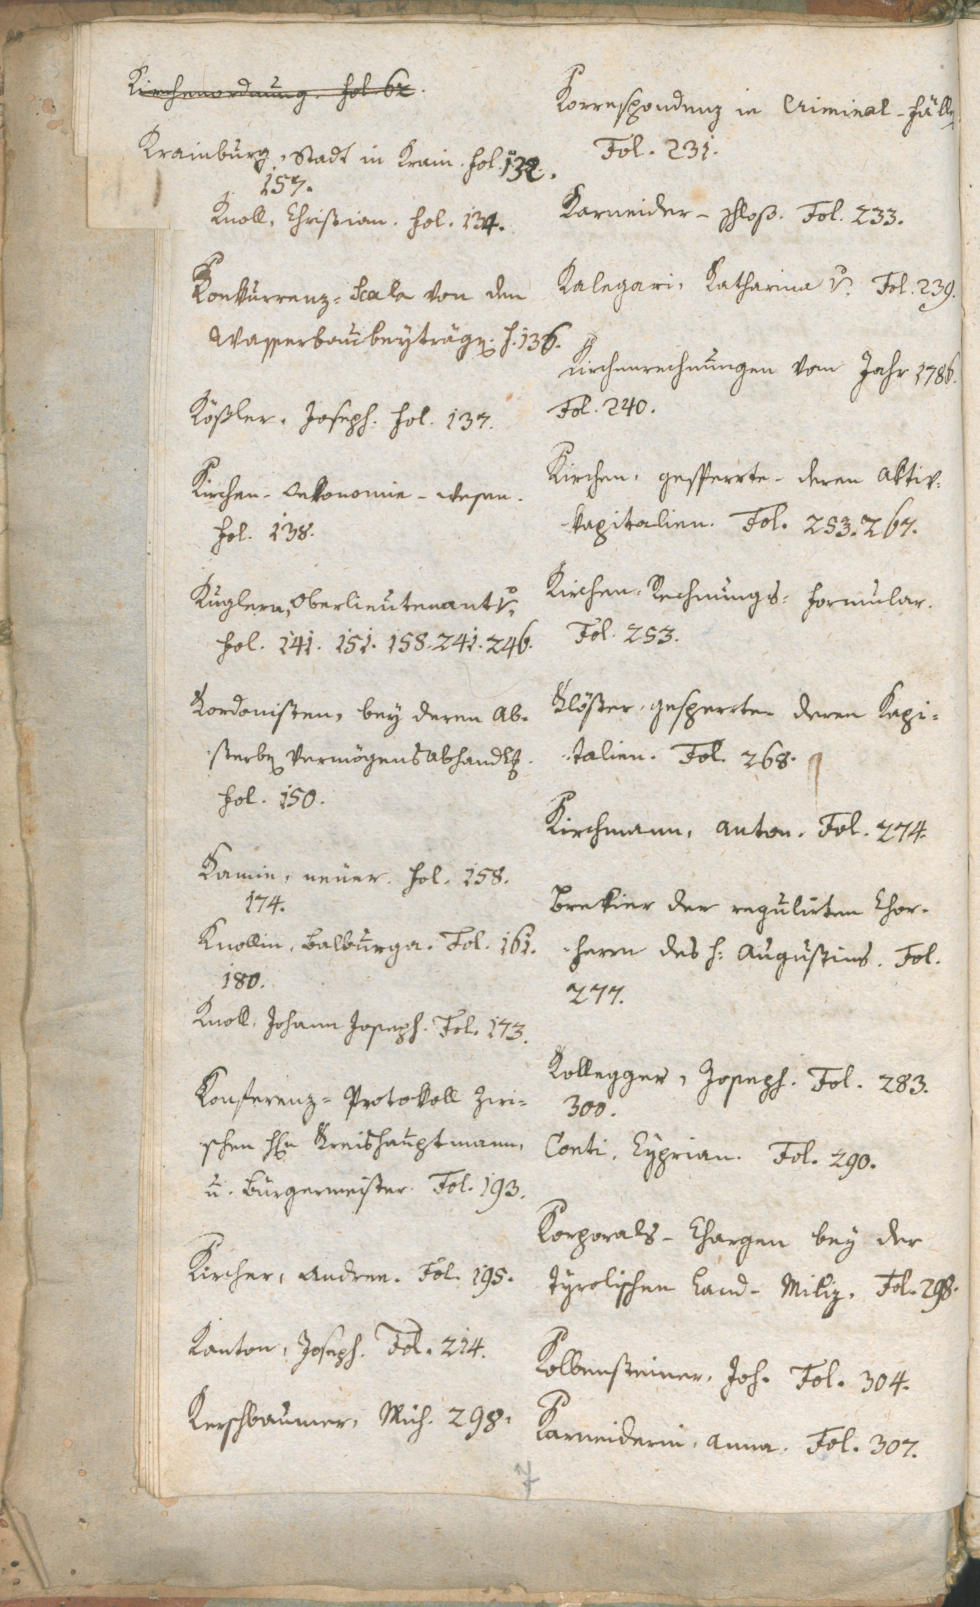 Kirchenordnung. fol. 62.
Krainburg, Stadt in Krain. fol. 132.
157.
Knoll, Christian. fol. 134.
Konkurrenz-Scala von den
Wasserbaubeyträgen. f. 136.
Kößler, Joseph. fol. 137.
Kirchen-Oekonomie-wesen.
fol. 138.
Kuglern, Oberlieutenant
fol. 141. 151. 158. 241. 246.
Kordonisten, bey deren Ab-
sterben Vermögensabhandlg.
fol. 150.
Kamin, neuer. fol. 158.
174.
Knollin, Balburga. Fol. 161.
180.
Knoll, Johann Joseph. Fol. 173.
Konferenz-Protokoll zwi-
schen Hrn Kreishauptmann,
u. Bürgermeister. Fol. 193.
Kircher, Andree. Fol. 195.
Kanton, Joseph. Fol. 214.
Kerschbaumer, Mich. 298.
Korrespondenz in Criminal-fälln
Fol. 231.
Karneider-schloß. Fol. 233.
Kalegari, Katharina v. Fol. 239.
Kirchenrechnungen vom Jahr 1786.
Fol. 240.
Kirchen, gesperrte- deren Aktiv-
kapitalien. Fol. 253. 267.
Kirchen-Rechnungs-formular.
Fol. 253.
Klöster, gesperrte- deren Kapi-
talien. Fol. 268.
Kirchmann, Anton. Fol. 274.
der regulirten Chor-
herrn des h: Augustins. Fol.
277.
Kollegger, Joseph. Fol. 283.
300.
Conti, Cyprian. Fol. 290.
Korporals-Chargen bey der
Tyrolischen Land-Miliz. Fol. 298.
Kolbensteiner, Joh. Fol. 304.
Karneiderin, Anna. Fol. 307.
7